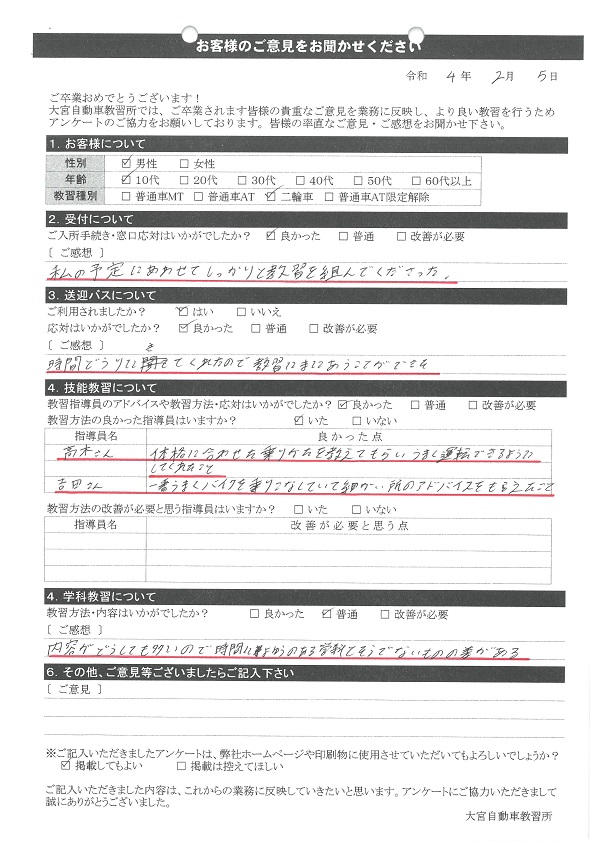 お客様のご意見をお聞かせください
令和 4年 2月 5日
ご卒業おめでとうございます！
大宮自動車教習所では、ご卒業されます皆様の貴重なご意見を業務に反映し、より良い教習を行うため
アンケートのご協力をお願いしております。皆様の率直なご意見・ご感想をお聞かせ下さい。
1. お客様について
性別 ☑男性 □女性
年齢 ☑10代 □20代 □30代 □40代 □50代 □60代以上
教習種別 □普通車MT □普通車AT ☑二輪車 □普通車AT限定解除
2. 受付について
ご入所手続き・窓口応対はいかがでしたか？ ☑良かった □普通 □改善が必要
〔 ご感想 〕
私の予定にあわせてしっかりと教習を組んでくださった。
3. 送迎バスについて
ご利用されましたか？ ☑はい □いいえ
応対はいかがでしたか？ ☑良かった □普通 □改善が必要
〔 ご感想 〕
時間どうりにきてくれたので教習にまにあうことができた
4. 技能教習について
教習指導員のアドバイスや教習方法・応対はいかがでしたか？ ☑良かった □普通 □改善が必要
教習方法の良かった指導員はいますか？ ☑いた □いない
指導員名 良かった点
高木さん 体格に合わせた乗りかたを教えてもらいうまく運転できるように
してくれたこと
吉田さん 一番うまくバイクを乗りこなしていて細かい所のアドバイスをもらえたこと
教習方法の改善が必要と思う指導員はいますか？ □いた □いない
指導員名 改善が必要と思う点
4. 学科教習について
教習方法・内容はいかがでしたか？ □良かった ☑普通 □改善が必要
〔 ご感想 〕
内容がどうしても多いので時間によゆうのある学科とそうでないものの差がある
6. その他、ご意見等ございましたらご記入下さい
〔 ご意見 〕
※ご記入いただきましたアンケートは、弊社ホームページや印刷物に使用させていただいてもよろしいでしょうか？
☑掲載してもよい □掲載は控えてほしい
ご記入いただきました内容は、これからの業務に反映していきたいと思います。アンケートにご協力いただきまして
誠にありがとうございました。
大宮自動車教習所